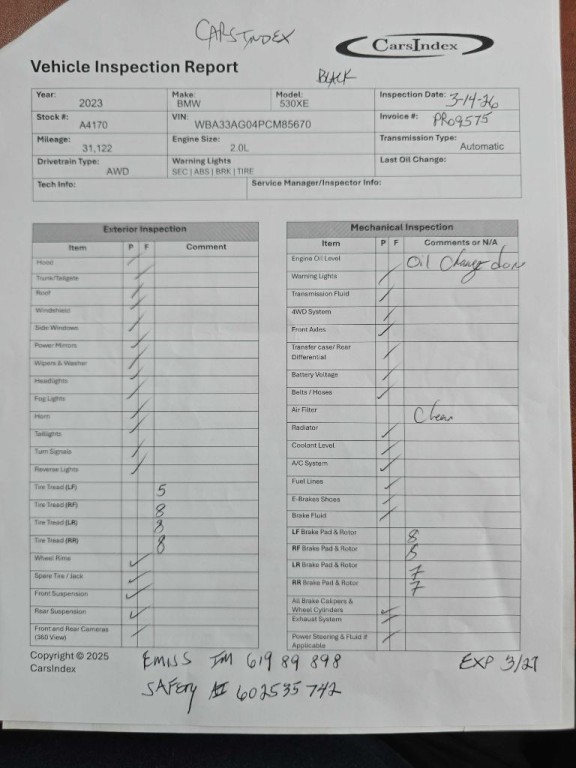 CARSINDEX
CarsIndex
Vehicle Inspection Report
BLACK
Year: 2023 Make: BMW Model: 530XE Inspection Date: 3-14-26
Stock #: A4170 VIN: WBA33AG04PCM85670 Invoice #: PR09575
Mileage: 31,122 Engine Size: 2.0L Transmission Type: Automatic
Drivetrain Type: AWD Warning Lights SEC | ABS | BRK | TIRE Last Oil Change:
Tech Info: Service Manager/Inspector Info:
Exterior Inspection
Item P F Comment
Hood
Trunk/Tailgate
Roof
Windshield
Side Windows
Power Mirrors
Wipers & Washer
Headlights
Fog Lights
Horn
Taillights
Turn Signals
Reverse Lights
Tire Tread (LF) 5
Tire Tread (RF) 8
Tire Tread (LR) 8
Tire Tread (RR) 8
Wheel Rims
Spare Tire / Jack
Front Suspension
Rear Suspension
Front and Rear Cameras
(360 View)
Mechanical Inspection
Item P F Comments or N/A
Engine Oil Level Oil change done
Warning Lights
Transmission Fluid
4WD System
Front Axles
Transfer case/ Rear
Differential
Battery Voltage
Belts / Hoses
Air Filter Clean
Radiator
Coolant Level
A/C System
Fuel Lines
E-Brakes Shoes
Brake Fluid
LF Brake Pad & Rotor 8
RF Brake Pad & Rotor 8
LR Brake Pad & Rotor 7
RR Brake Pad & Rotor 7
All Brake Calipers &
Wheel Cylinders
Exhaust System
Power Steering & Fluid if
Applicable
Copyright © 2025
CarsIndex
EMISS IM 61989898 EXP 3/27
SAFETY AI 602535742